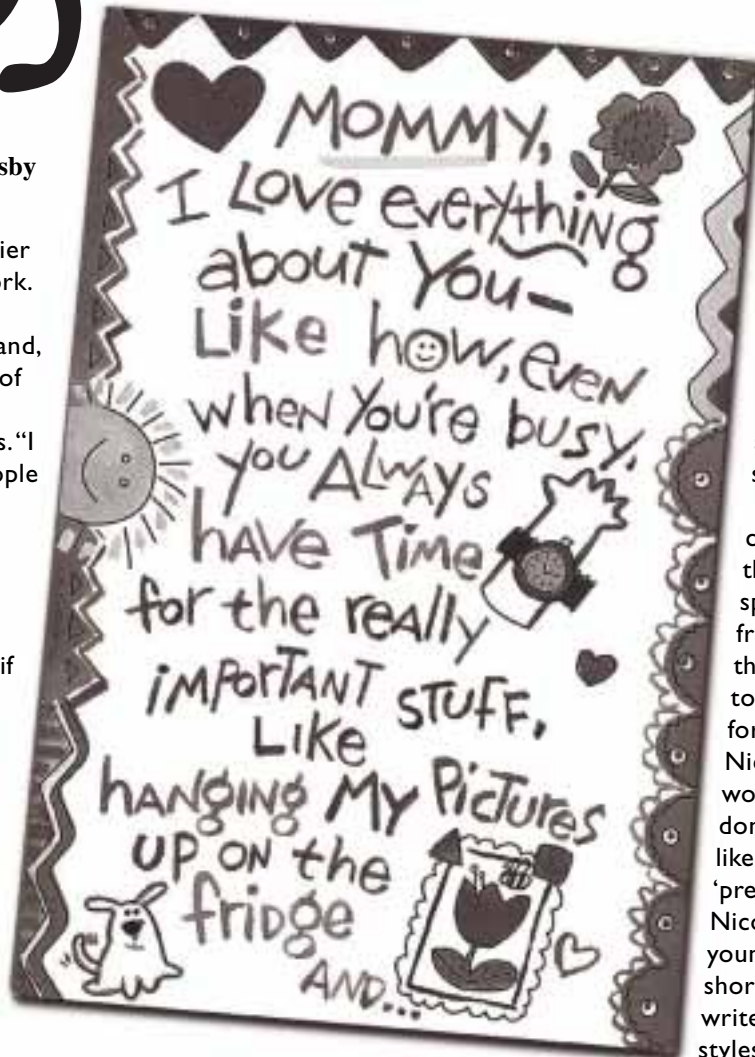 sby
ier
rk.
and,
of
s. "I
ople
if
MOMMY,
I Love everything
about You–
Like how, even
when You're busy,
you ALWAYS
have Time
for the really
iMPorTANT STUFF,
Like
hANgiNg MY PicTures
UP ON the
friDge
AND...
s
c
th
sp
fr
th
to
for
Nic
wo
don
like
'pre
Nico
your
shor
write
styles